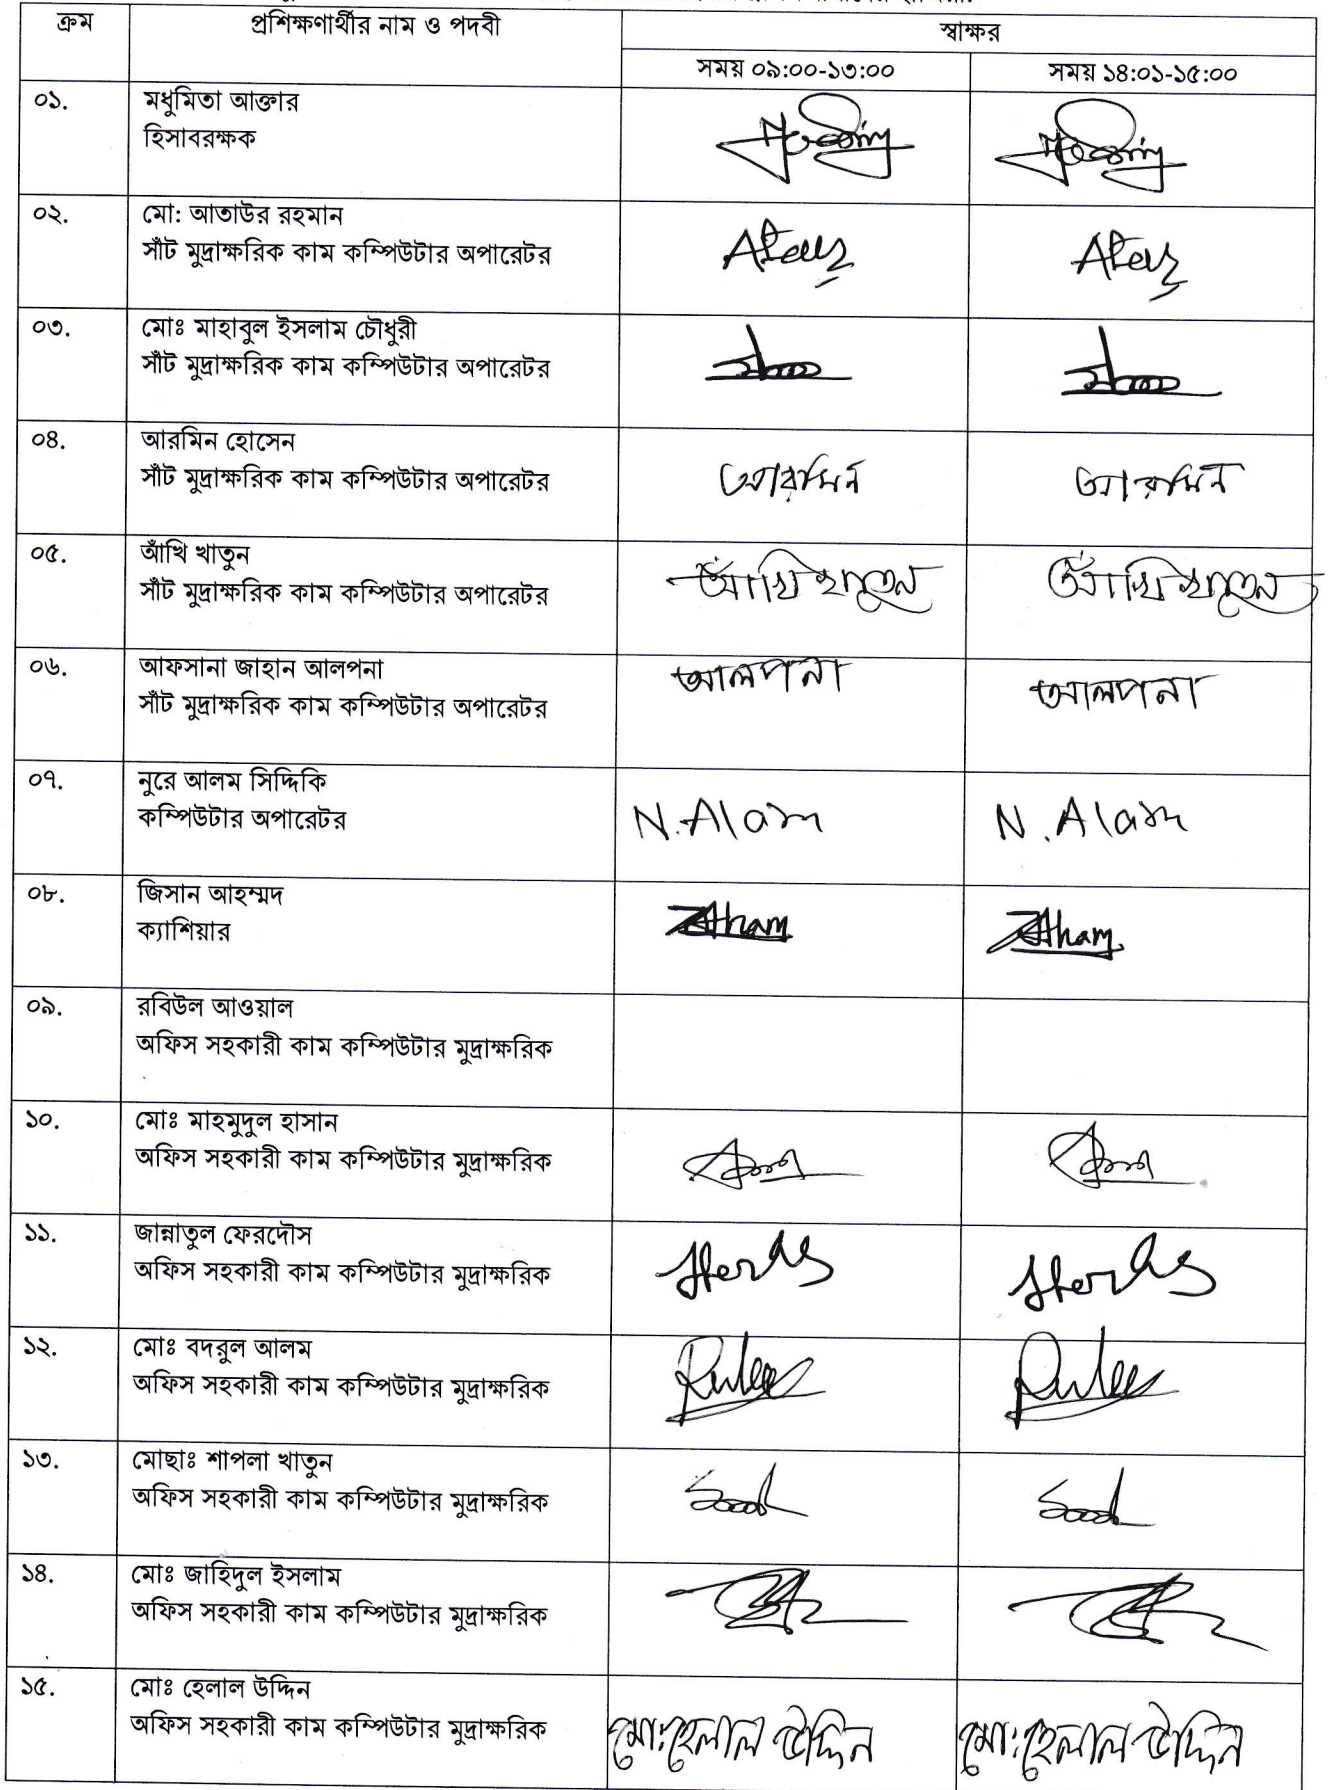 ক্রম
প্রশিক্ষণার্থীর নাম ও পদবী
স্বাক্ষর
সময় ০৯:০০-১৩:০০
সময় ১৪:০১-১৫:০০
০১.
মধুমিতা আক্তার
হিসাবরক্ষক
০২.
মো: আতাউর রহমান
সাঁট মুদ্রাক্ষরিক কাম কম্পিউটার অপারেটর
০৩.
মোঃ মাহাবুল ইসলাম চৌধুরী
সাঁট মুদ্রাক্ষরিক কাম কম্পিউটার অপারেটর
০৪.
আরমিন হোসেন
সাঁট মুদ্রাক্ষরিক কাম কম্পিউটার অপারেটর
আরমিন
আরমিন
০৫.
আঁখি খাতুন
সাঁট মুদ্রাক্ষরিক কাম কম্পিউটার অপারেটর
আঁখি খাতুন
আঁখি খাতুন
০৬.
আফসানা জাহান আলপনা
সাঁট মুদ্রাক্ষরিক কাম কম্পিউটার অপারেটর
আলপনা
আলপনা
০৭.
নুরে আলম সিদ্দিকি
কম্পিউটার অপারেটর
N. Alam
N. Alam
০৮.
জিসান আহম্মদ
ক্যাশিয়ার
০৯.
রবিউল আওয়াল
অফিস সহকারী কাম কম্পিউটার মুদ্রাক্ষরিক
১০.
মোঃ মাহমুদুল হাসান
অফিস সহকারী কাম কম্পিউটার মুদ্রাক্ষরিক
১১.
জান্নাতুল ফেরদৌস
অফিস সহকারী কাম কম্পিউটার মুদ্রাক্ষরিক
১২.
মোঃ বদরুল আলম
অফিস সহকারী কাম কম্পিউটার মুদ্রাক্ষরিক
১৩.
মোছাঃ শাপলা খাতুন
অফিস সহকারী কাম কম্পিউটার মুদ্রাক্ষরিক
১৪.
মোঃ জাহিদুল ইসলাম
অফিস সহকারী কাম কম্পিউটার মুদ্রাক্ষরিক
১৫.
মোঃ হেলাল উদ্দিন
অফিস সহকারী কাম কম্পিউটার মুদ্রাক্ষরিক
মো: হেলাল উদ্দিন
মো: হেলাল উদ্দিন